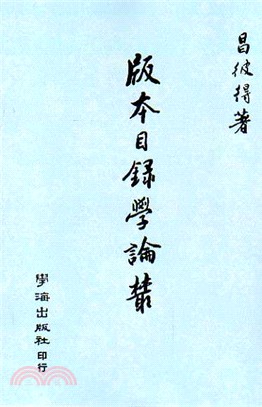 昌彼得著
版本目錄學論叢
學海出版社印行